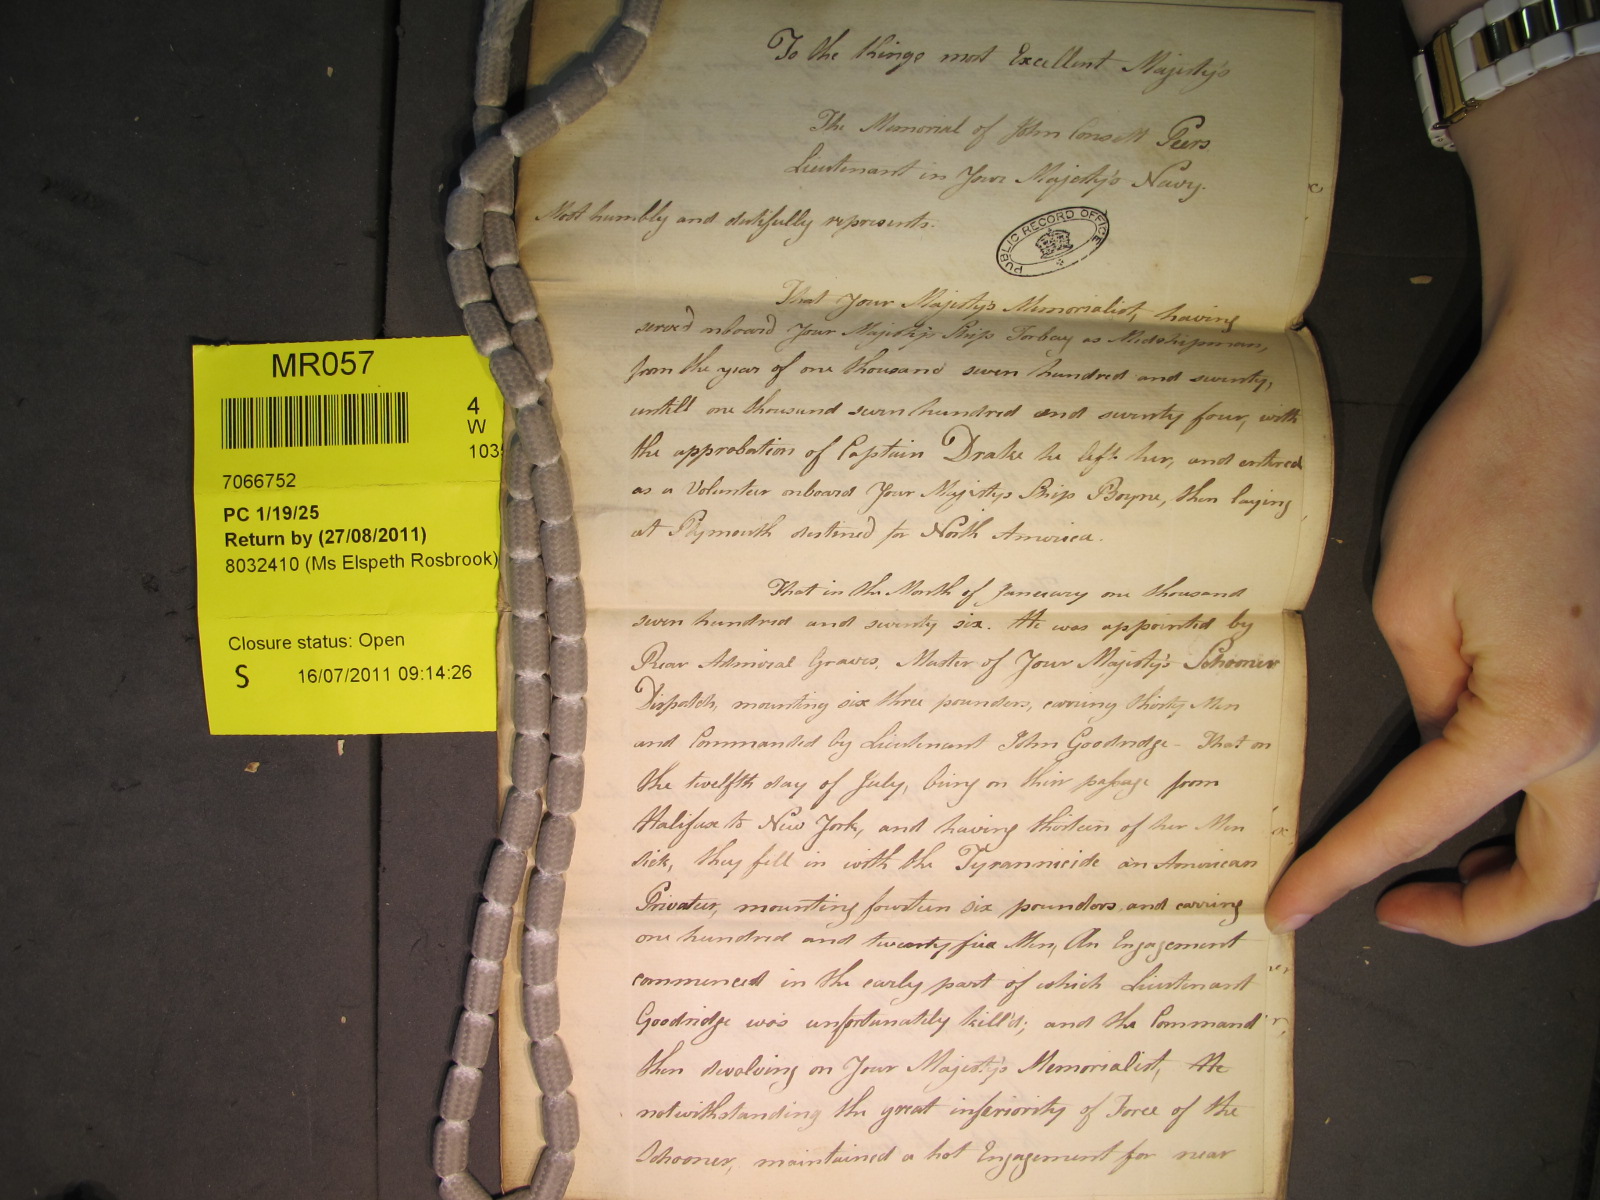 MR057
4
W
103
7066752
PC 1/19/25
Return by (27/08/2011)
8032410 (Ms Elspeth Rosbrook)
Closure status: Open
S 16/07/2011 09:14:26
To the Kings most Excellent Majesty's
The Memorial of John Consett Peers
Lieutenant in Your Majesty's Navy.
Most humbly and dutifully represents.
PUBLIC RECORD OFFICE
That Your Majesty's Memorialist, having
serv'd onboard Your Majesty's Ship Torbay as Midshipman,
from the year of one thousand seven hundred and seventy,
untill one thousand seven hundred and seventy four, with
the approbation of Captain Drake he left her, and entered
as a Volunteer onboard Your Majestys Ship Boyne, then laying
at Plymouth destened for North America.
That in the Month of Janeuary one thousand
seven hundred and seventy six. He was appointed by
Rear Admiral Graves, Master of Your Majesty's Schooner
Dispatch, mounting six three pounders, carring thirty Men
and Commanded by Lieutenant John Goodridge - That on
the twelfth day of July, being on their passage from
Halifax to New York, and having thirteen of her Men
sick, they fell in with the Tyrannicide an American
Privateer, mounting fourteen six pounders and carring
one hundred and twenty five Men, An Engagement
commenced in the early part of which Lieutenant
Goodridge was unfortunately kill'd; and the Command
then devolving on Your Majesty's Memorialist, He
notwithstanding the great inferiority of Force of the
Schooner, maintained a hot Engagement for near